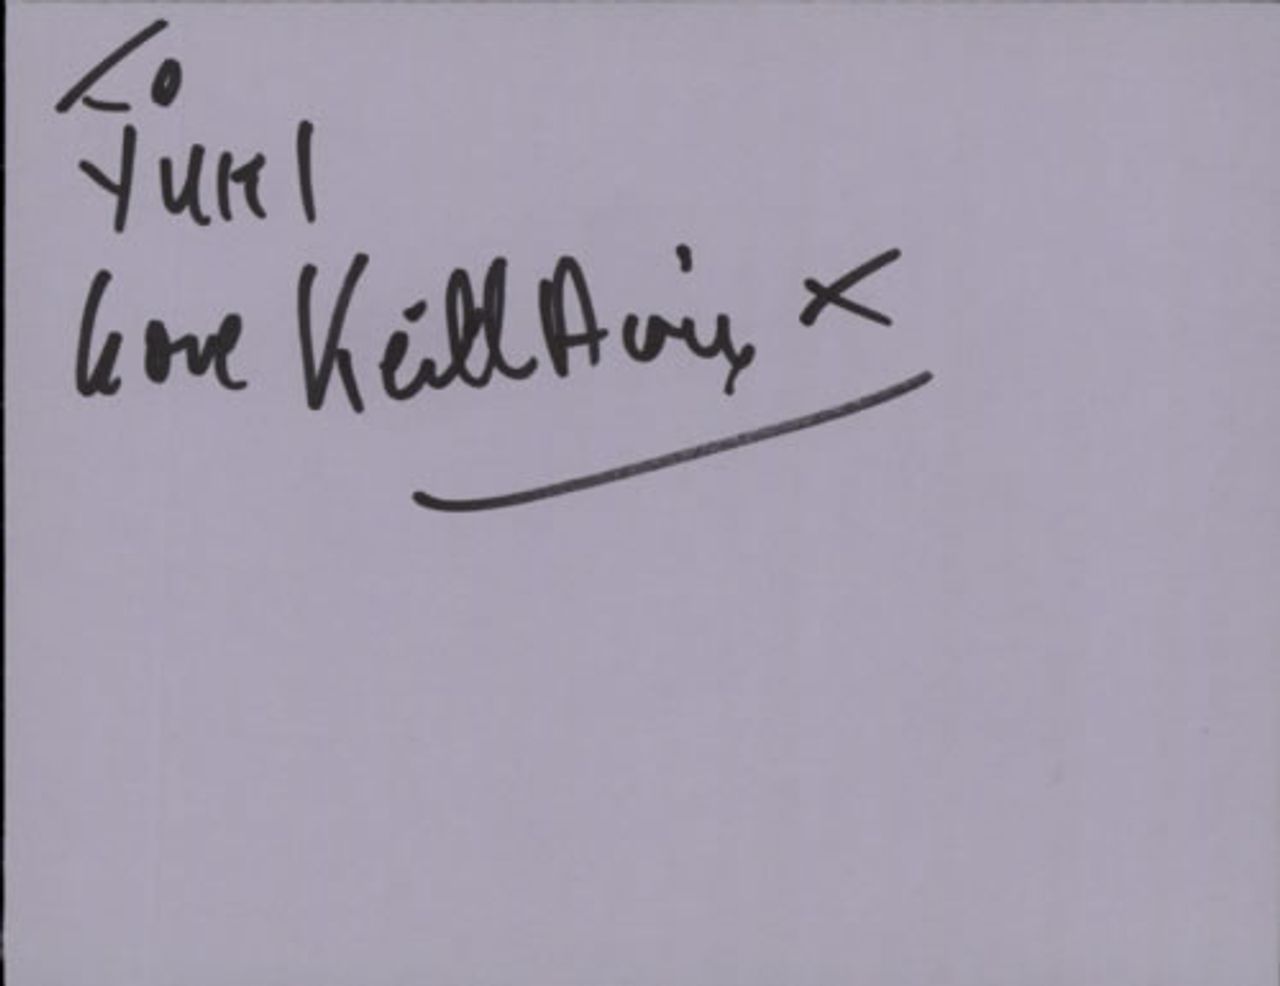 To
YUKI
Love Keith Harris X